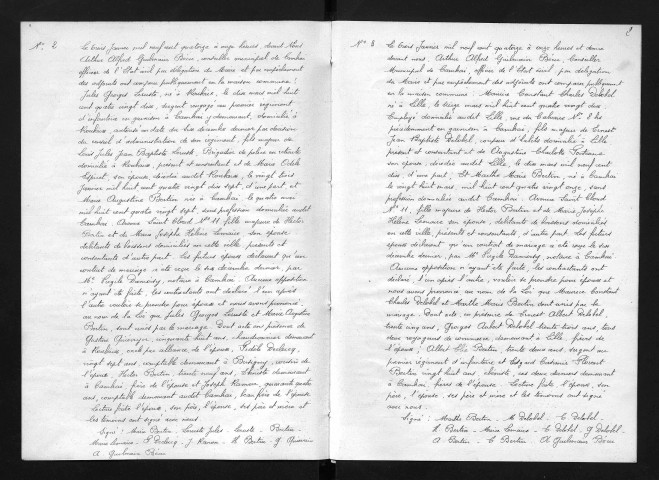 N° 2
Le trois Janvier mil neuf cent quatorze à onze heures, devant Nous
Arthur Alfred Guilmain Béra, conseiller municipal de Cambrai
officier de l'Etat civil par délégation du Maire et par empêchement
des adjoints ont comparu publiquement en la maison commune :
Jules Georges né à Roubaix, le dix mars mil huit
cent quatre vingt dix, sergent au premier régiment
d'infanterie en garnison à Cambrai y demeurant, domicilié à
Roubaix, autorisé en date du dix décembre dernier par décision
du conseil d'administration de son régiment, fils majeur de
Louis Jules Jean Baptiste Brigadier de police en retraite
domicilié à Roubaix, présent et consentant et de Marie Odile
son épouse, décédée audit Roubaix, le vingt trois
Janvier mil huit cent quatre vingt dix sept, d'une part, et
Marie Augustine Bertin née à Cambrai, le quatre mai
mil huit cent quatre vingt sept, sans profession domiciliée audit
Cambrai Avenue Saint Cloud N° 11, fille majeure de Hector
Bertin et de Marie Josèphe Hélène Lemaire son épouse
débitants de boissons domiciliés en cette ville, présents et
consentants d'autre part. Les futurs époux déclarent qu'un
contrat de mariage a été reçu le dix décembre dernier, par
M° notaire à Cambrai. Aucune opposition
n'ayant été faite les contractants ont déclaré l'un après
l'autre vouloir se prendre pour époux et nous avons prononcé,
au nom de la Loi que Jules Georges et Marie Augustine
Bertin, sont unis par le mariage. Dont acte en présence de
Gustave cinquante huit ans, demeurant
à Roubaix, oncle par alliance de l'époux,
vingt sept ans, comptable demeurant à cousin de
l'époux, Hector Bertin, vingt huit ans, demeurant
à Cambrai frère de l'épouse et Joseph Ramon, quarante quatre
ans, comptable demeurant audit Cambrai, beau frère de l'épouse.
Lecture faite l'épouse, son père, l'épouse, ses père et mère et
les témoins ont signé avec nous.
Signé : Marie Bertin - Jules - Bertin -
Marie Lemaire - J. Ramon - H. Bertin - G.
A. Guilmain Béra
N° 3
Le trois Janvier mil neuf cent quatorze à onze heures et demie
devant nous, Arthur Alfred Guilmain Béra, Conseiller
Municipal de Cambrai, officier de l'Etat civil par délégation
du Maire et par empêchement des adjoints ont comparu publiquement
en la maison commune : Maurice Constant Charles Delobel
né à Lille, le seize mars mil huit cent quatre vingt dix
Employé domicilié audit Lille, rue du Calvaire N° 8 bis
présentement en garnison à Cambrai, fils majeur de Ernest
Jean Baptiste Delobel, domicilié à Lille
présent et consentant et de Augustine Charlotte Fontaine
son épouse, décédée audit Lille, le dix mars mil neuf cent
dix, d'une part, Et Marthe Marie Bertin, née à Cambrai
le vingt huit mars, mil huit cent quatre vingt onze, sans
profession domiciliée audit Cambrai. Avenue Saint Cloud
N° 11, fille majeure de Hector Bertin et de Marie Josèphe
Hélène Lemaire son épouse, débitants de boissons domiciliés
en cette ville, présents et consentants, d'autre part. Les futurs
époux déclarent qu'un contrat de mariage a été reçu le dix
décembre dernier, par M° notaire à Cambrai
Aucune opposition n'ayant été faite, les contractants ont
déclaré, l'un après l'autre, vouloir se prendre pour époux et
nous avons prononcé au nom de la Loi que Maurice Constant
Charles Delobel et Marthe Marie Bertin, sont unis par le
mariage. Dont acte, en présence de Ernest Albert Delobel,
trente cinq ans, Georges Albert Delobel trente trois ans, tous
deux voyageurs de commerce, demeurant à Lille, frères de
l'époux, Albert Bertin, trente deux ans, sergent au
premier régiment d'infanterie et Edouard Casimir Florent
Bertin vingt huit ans, ces deux derniers demeurant
à Cambrai, frères de l'épouse. Lecture faite l'époux, son
père, l'épouse, ses père et mère et les témoins ont signé
avec nous.
Signé : Marthe Bertin - M. Delobel - E. Delobel -
H. Bertin - Marie Lemaire - E. Delobel - G. Delobel -
A. Bertin - E. Bertin - A. Guilmain Béra